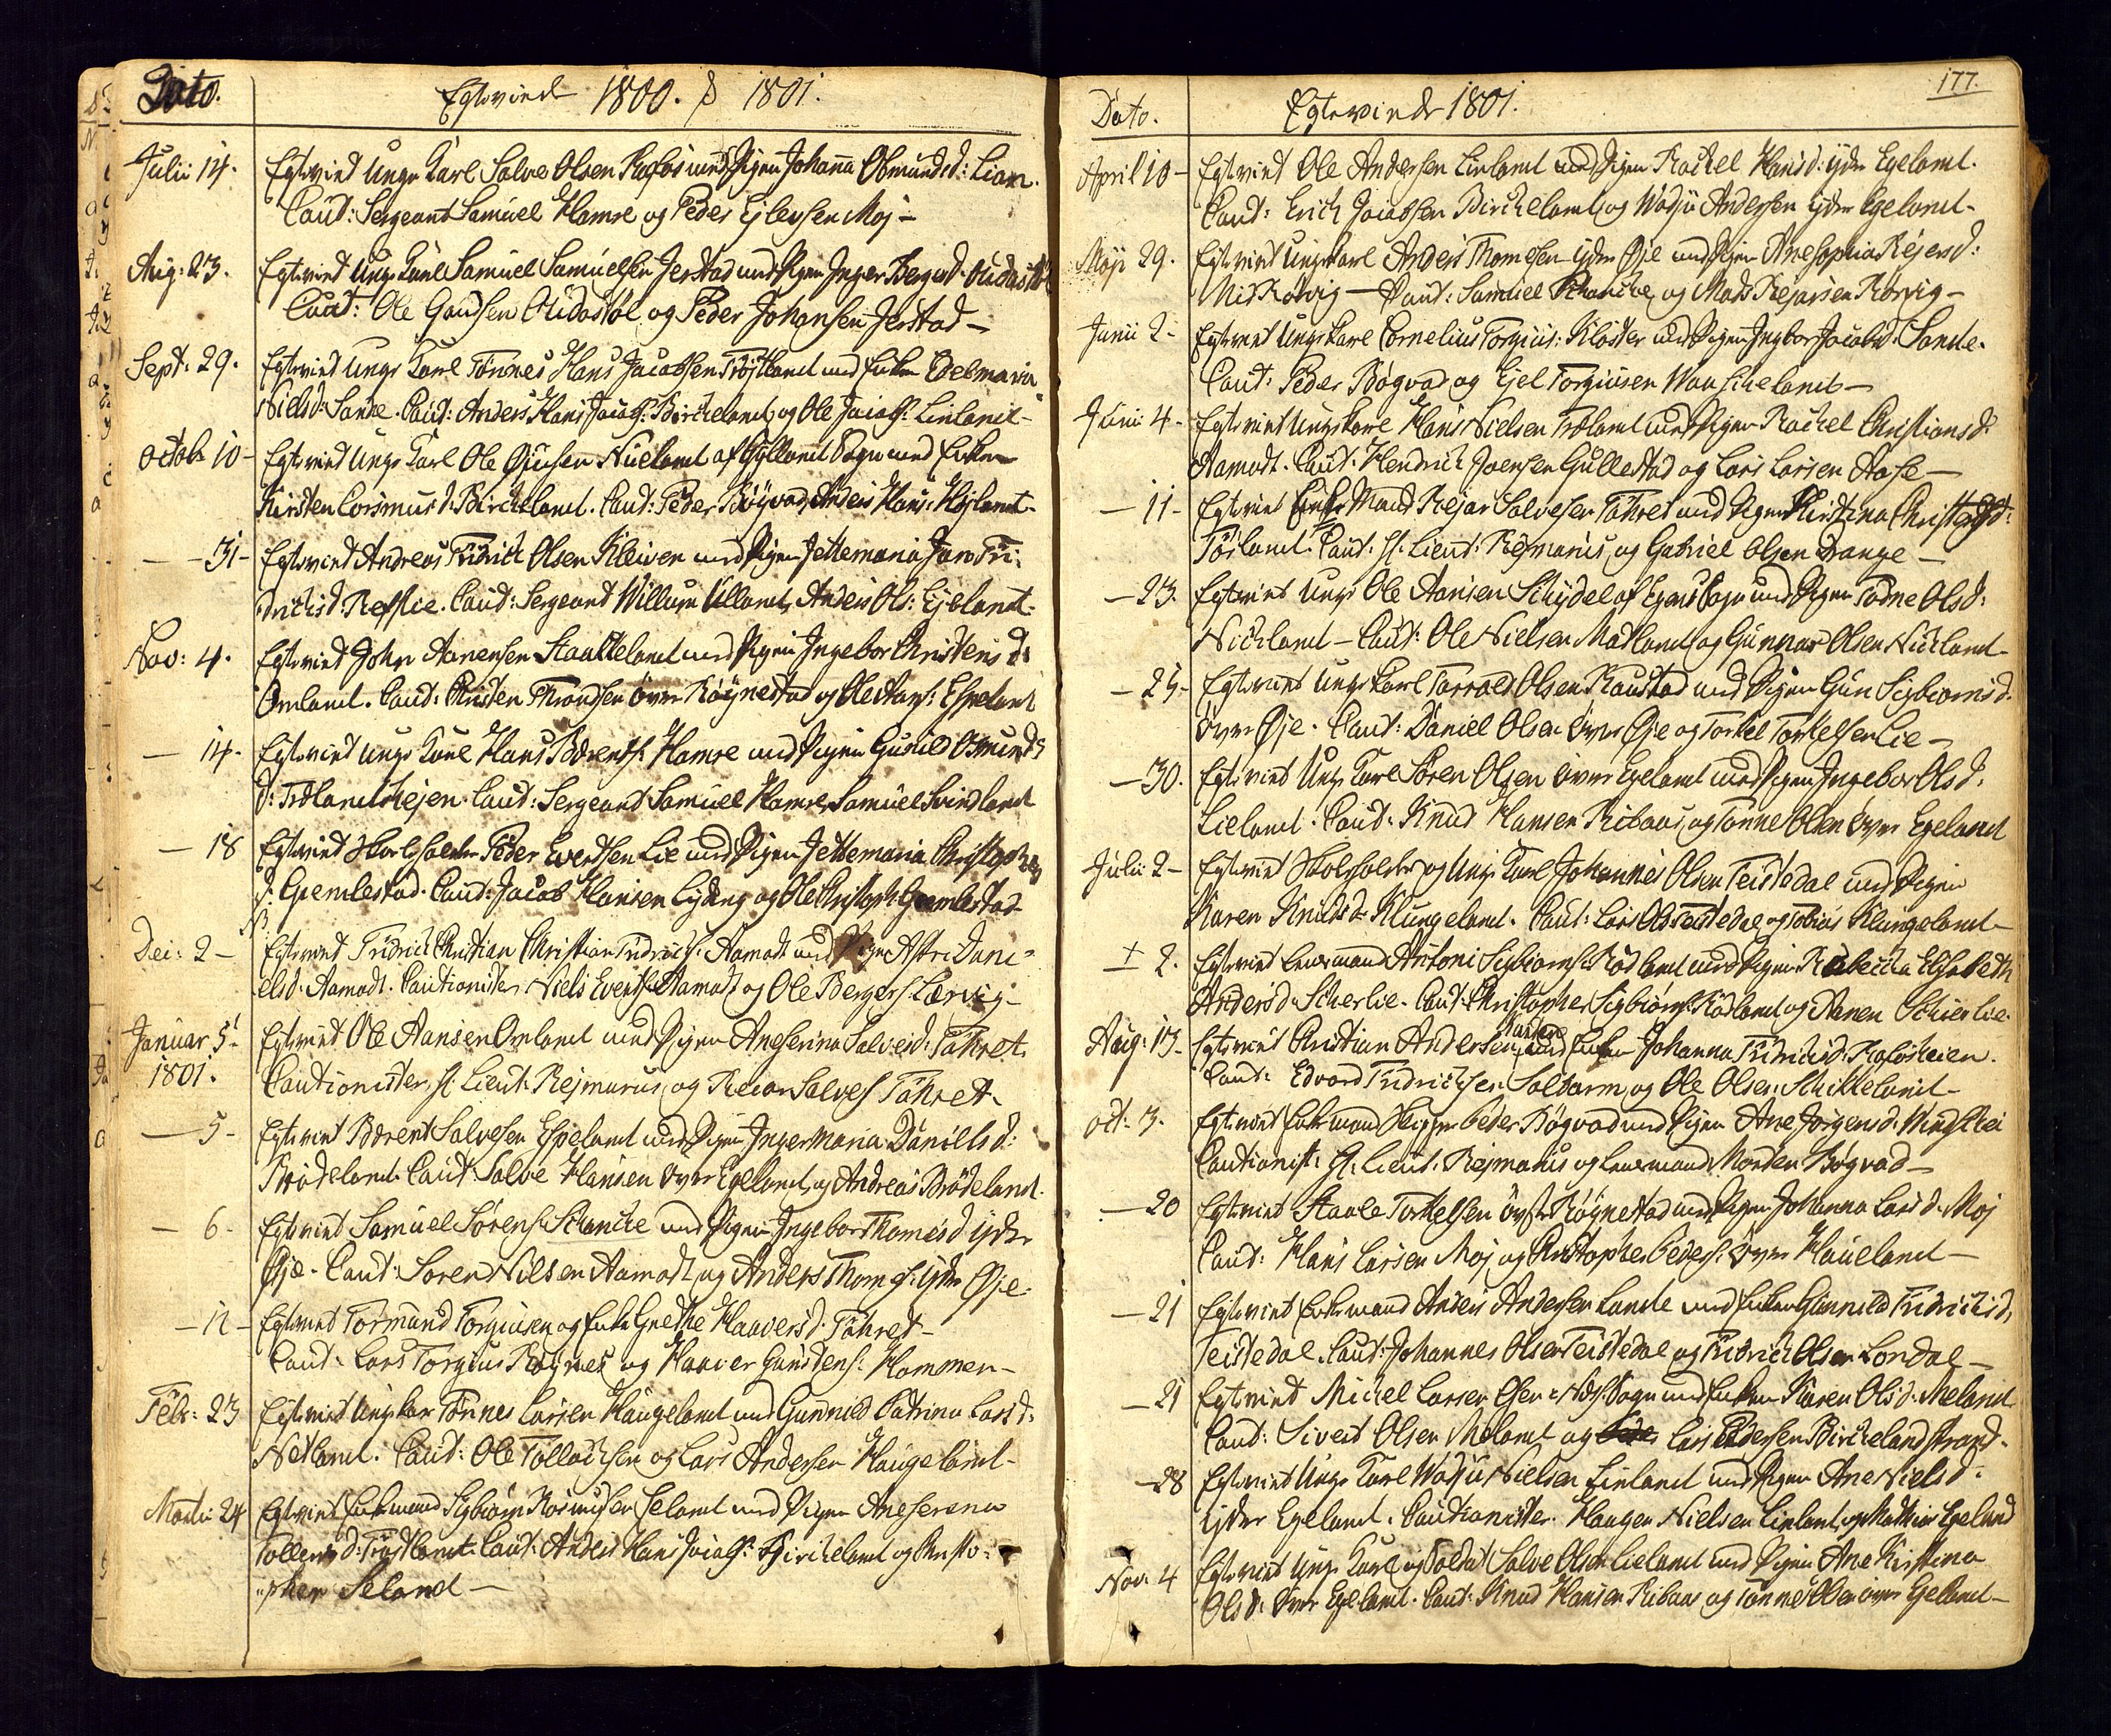 Dato.
Egteviede 1800. & 1801.
Julii 14. Egteviet Unge Karl Salve Olsen Rafos med Pigen Johanna Osmundsd: Lian.
Caut: Sergeant Samuel Hamre og Peder Ejlevsen Moj –
Aug: 23. Egteviet Unge Karl Samuel Samuelsen Jerstad med Pigen Inger Bergesd.
Caut: Ole Gundsen og Peder Johansen Jerstad –
Sept: 29. Egteviet Unge Karl Tönnes Hans Jacobsen Tröstland med Enken Edelmaria
Nielsd: Sande. Caut: Anders Hans Jacobs: Birckeland og Ole Jacobs: Linland –
Octob: 10 – Egteviet Unge Karl Ole Nueland af Gylland Sogn med Enken
Kirsten Corsmusd: Birckeland. Caut: Peder Bögvad, Anders Hans: Högland –
– 31 – Egteviet Andreas Fridrich Olsen Kleiven med Pigen Jettemaria Jan Fri-
drichsd: Refslie. Caut: Sergeant Willum Ulland, Anders Ols: Egeland –
Nov: 4. Egteviet John Aanensen Staalkeland med Pigen Ingebor Christensd:
Omland. Caut: Christen Throndsen över Röynestad og Ole Aans: Espeland
– 14. Egteviet Unge Karl Hans Bærents: Hamre med Pigen Gunild Osmunds
d: Trælandshejen. Caut: Sergeant Samuel Hamre, Samuel Svindland
– 18 Egteviet Skoleholder Peder Evertsen Lie med Pigen Jettemaria Christophers
d: Gremlestad. Caut: Jacob Hansen og Ole Christoph: Gremlestad
Dec: 2 – Egteviet Fridrich Christian Christian Fridrichs: Aamodt med Pigen Astri Dani-
elsd. Aamodt. Cautionister Niels Everts: Aamodt og Ole Bergers: Lervig –
Januar 5te Egteviet Ole Aansen Omland med Pigen Aneserina Salvesd: Föhret.
1801. Cautionister, Hr Lieut: Rejmarus, og Reiar Salves: Föhret.
– 5 – Egteviet Bærent Salvesen Espeland med Pigen Ingermaria Daniellsd:
Brödeland. Caut: Salve Hansen Over Egeland, og Andreas Brödeland.
– 6 – Egteviet Samuel Sörens: Schancke med Pigen Ingebor Thomesd yder
Öje. Caut: Soren Nilsen Aamodt og Anders Thoms: yder Öje
– 11 – Egteviet Tormund Torgiusen og Enke Grethe Haaversd: Föhret –
Caut: Lars Torgius: og Haaver Gundens: Hammer –
Febr: 23 Egteviet Ungkar Tönnes Larsen Haugeland med Gunnild Catrina Larsd:
Netland. Caut: Ole Tollachsen og Lars Andersen Haugeland –
Marti: 24 Egteviet Enkemand Sigbiörn Rasmusen Seland med Pigen Aneserena
Tollevsd: Tröstland. Caut: Anders Hans Jacobs: Birckeland og Christo-
-pher Seland –
177.
Dato. Egteviede 1801.
April 10 – Egteviet Ole Andersen Linland med Pigen Rachel Hansd: yder Egeland.
Caut: Erich Jacobsen Birckeland, og Wadju Andersen yder Egeland –
Maji 29. Egteviet Ungekarl Anders Thomesen yder Öje med Pigen Anesophia Rejersd:
Midkörvig – Caut: Samuel Schancke og Mads Rejarsen Körvig –
Junii 2 – Egteviet Ungekarl Cornelius Torgius: Kloster med Pigen Ingbor Jacobsd: Sande.
Caut: Peder Bögvad og Ejel Torgiusen Wanscheland –
Junii 4 – Egteviet Ungekarl Hans Nielsen Træland med Pigen Rachel Christiansd:
Aamodt. Caut: Hendrich Joensen Gullestad og Lars Larsen Aase –
– 11 – Egteviet Enke Mand Rejar Salvesen Föhret med Pigen Kirstina
Tösland. Caut: Hr: Lieut: Rejmarus, og Gabriel Olsen Drange –
– 23. Egteviet Unge Ole Aansen af Sogn med Pigen Todne Olsd:
Nickland – Caut: Ole Nielsen Madland og Gunnar Olsen Nickland –
– 25 – Egteviet Unge Karl Torvald Olsen Raustad med Pigen Gun Sigbiornsd.
över Öje. Caut: Daniel Olsen över Öje og Torkel Torkelsen Lie –
– 30. Egteviet Unge Karl Sören Olsen över Egeland med Pigen Ingebor Olsd.
Lieland. Caut: Knud Hansen Ribaas og Tönnes Olsen över Egeland
Julii 2 – Egteviet Skoleholder og Unge Karl Johannes Olsen Teistedal med Pigen
Karen Knudsd: Klungeland. Caut: Lars Ols: Teistedal og Tobias Klungeland –
2. Egteviet Lensmand Antoni Sigbiörns: Rödland med Pigen Rebecka Elisabeth
Andersd: Scherlie. Caut: Christopher Sigbiörns: Rödland og Aanen Schierlie.
Aug: 13 – Egteviet Christian Andersen med Enken Johanna Fridrichsd: Rafosheien.
Caut: Edvard Fridrichsen Solbarm, og Ole Olsen Schikkeland –
Oct: 3. Egteviet Enkemand Skipper Peder Bögvad med Pigen Ane Jörgensd:
Cautionist: Hr: Lieut: Rejmarus og Lensmand Morten Bögvad –
– 20 Egteviet Staale Torkelsen Öfre Röynestad med Pigen Johanna Larsd: Moj
Caut: Hans Larsen Moj og Christopher Peders: över Haueland –
– 21 Egteviet Enkemand Anders Andersen Lande med Enken Gunnild Fridrichsd,
Teistedal. Caut: Johannes Olsen Teistedal og Fridrich Olsen Lordal –
– 21 Egteviet Michel Larsen Sogn med Enken Karen Olsd: Meland
Caut: Sivert Olsen Meland og Lars Pedersen Birckelandstrand.
– 28 Egteviet Unge Karl Wadju Nielsen Linland med Pigen Ane Nielsd:
yder Egeland. Cautionister. Haagen Nielsen Linland, og Mathias Egeland
Nov: 4 Egteviet Unge Karl og Soldat Salve Olsen Lieland med Pigen Ane Kirstina
Olsd. Över Egeland. Caut: Knud Hansen Ribaas og Tönnes Olsen över Egeland –